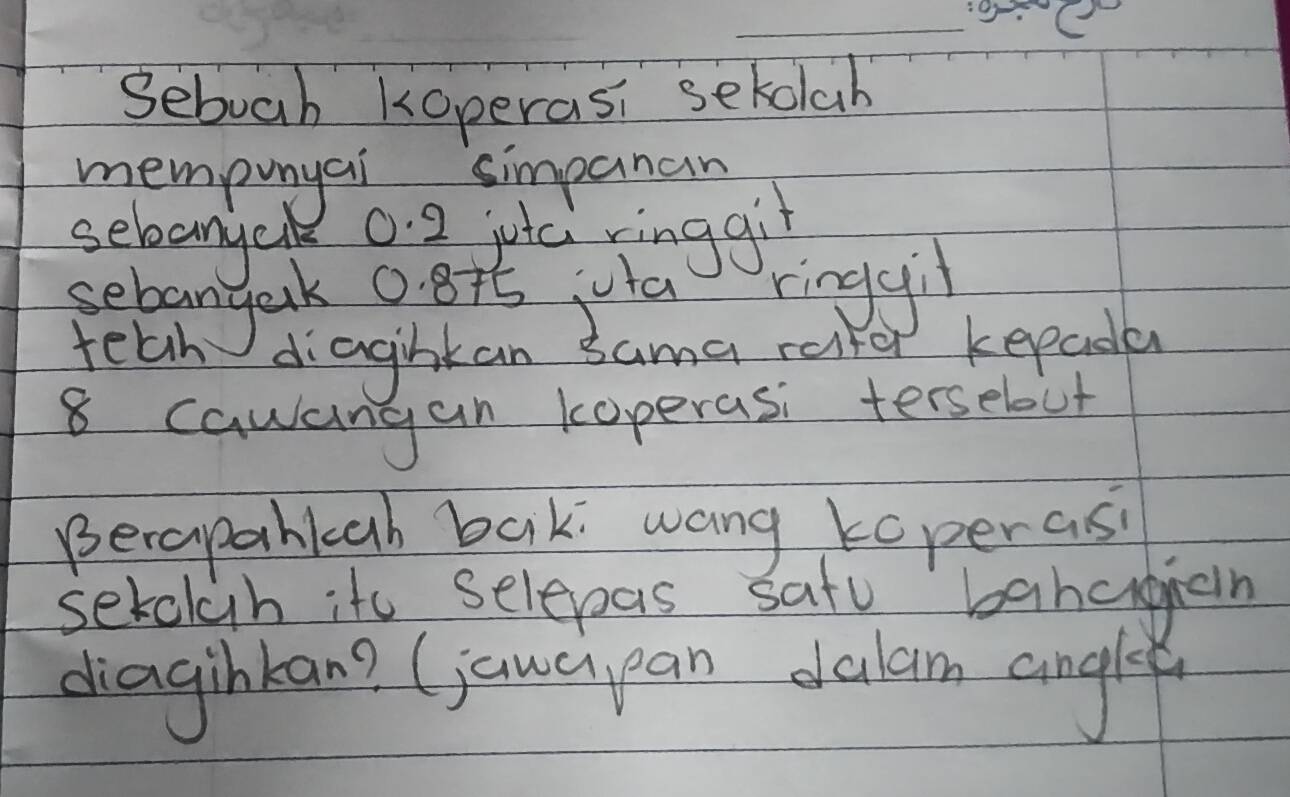 Sebuah koperasi sekolah
mempunyai simpanan
sebanyak 0.2 juta ringgit
sebanyak 0.875 juta ringgit
telah diagihkan sama rata kepada
8 cawangan koperasi tersebut
Berapahkah baki wang koperasi
sekolah itu selepas satu bahagian
diagihkan? (jawapan dalam angka